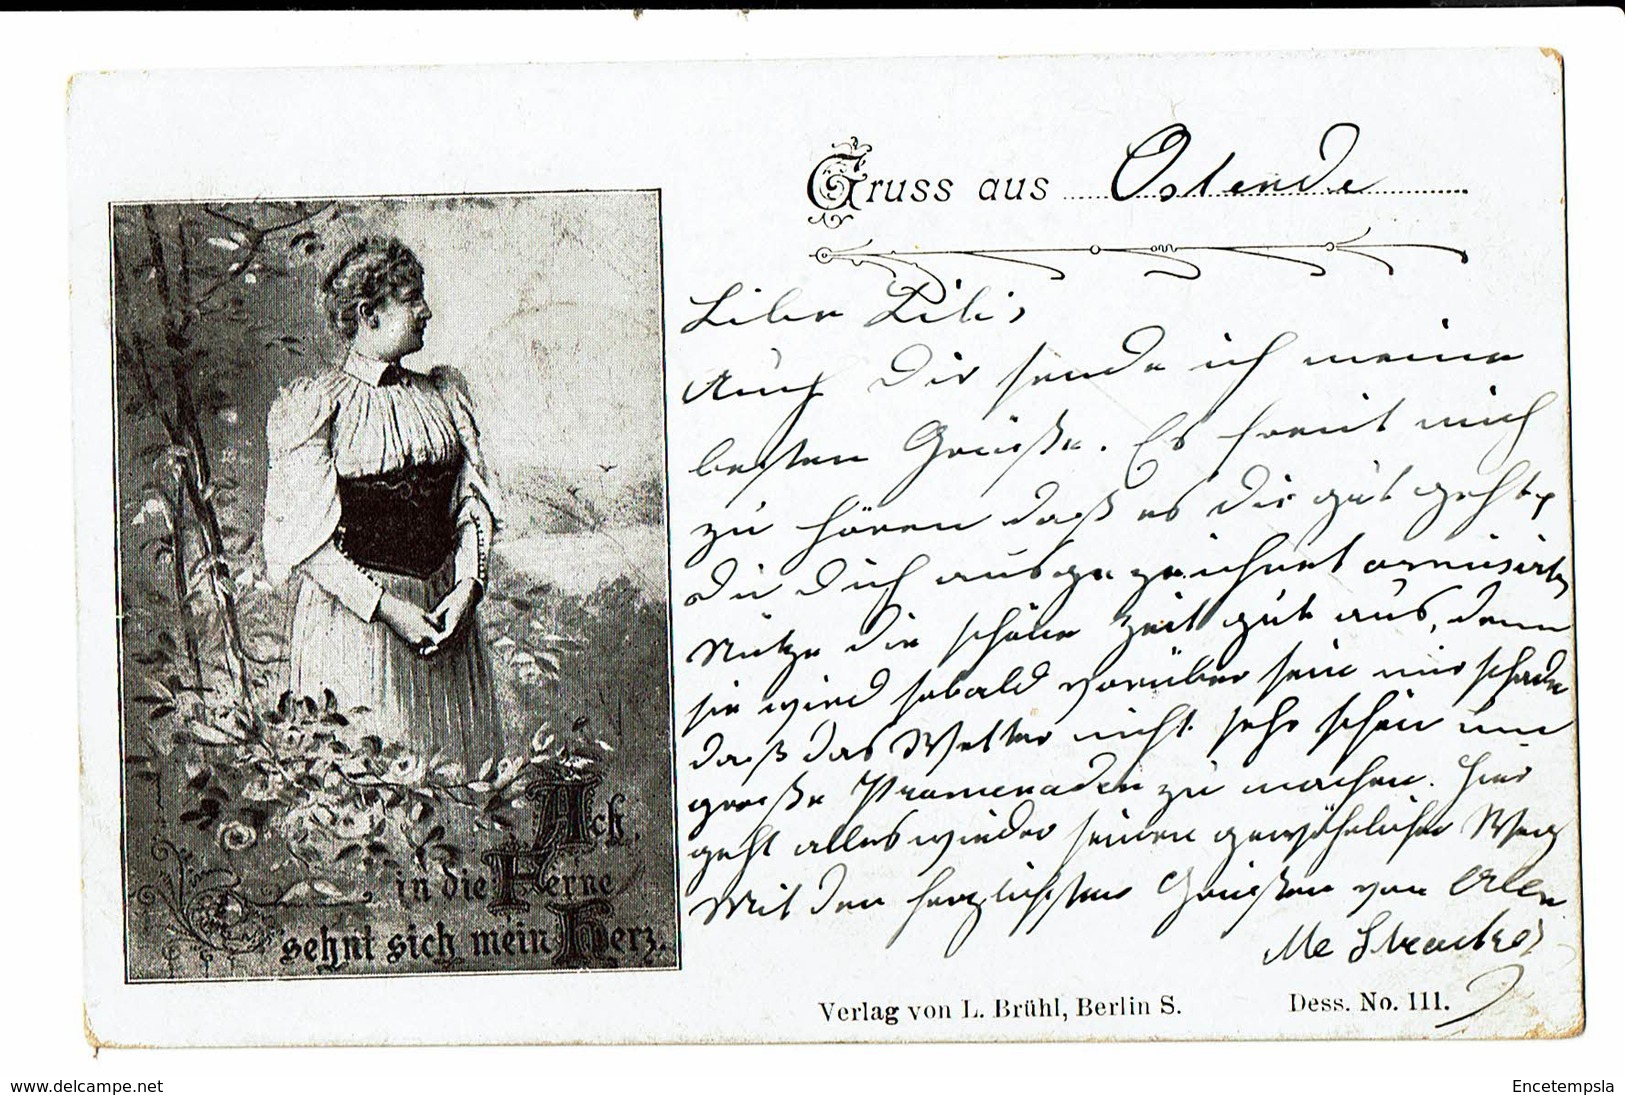 Gruss aus Ostende
Liebe Lili,
Auch Dir sende ich meine
besten Grüße. Es freut mich
zu hören daß es Dir gut geht
Du Dich ausgezeichnet amusirst
Nütze die schöne Zeit gut aus, denn
sie wird sobald vorüber sein nur schade
daß das Wetter nicht sehr schön um
große Promenaden zu machen. Hier
geht alles wieder seinen gewöhnlichen Weg
Mit den herzlichsten Grüßen von Allen
Ach
in die Ferne
sehnt sich mein Herz.
Verlag von L. Brühl, Berlin S. Dess. No. 111.
www.delcampe.net Encetempsla